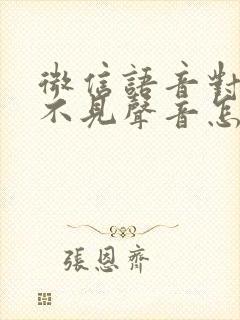 微信語音對
不見聲音怎
張恩齊